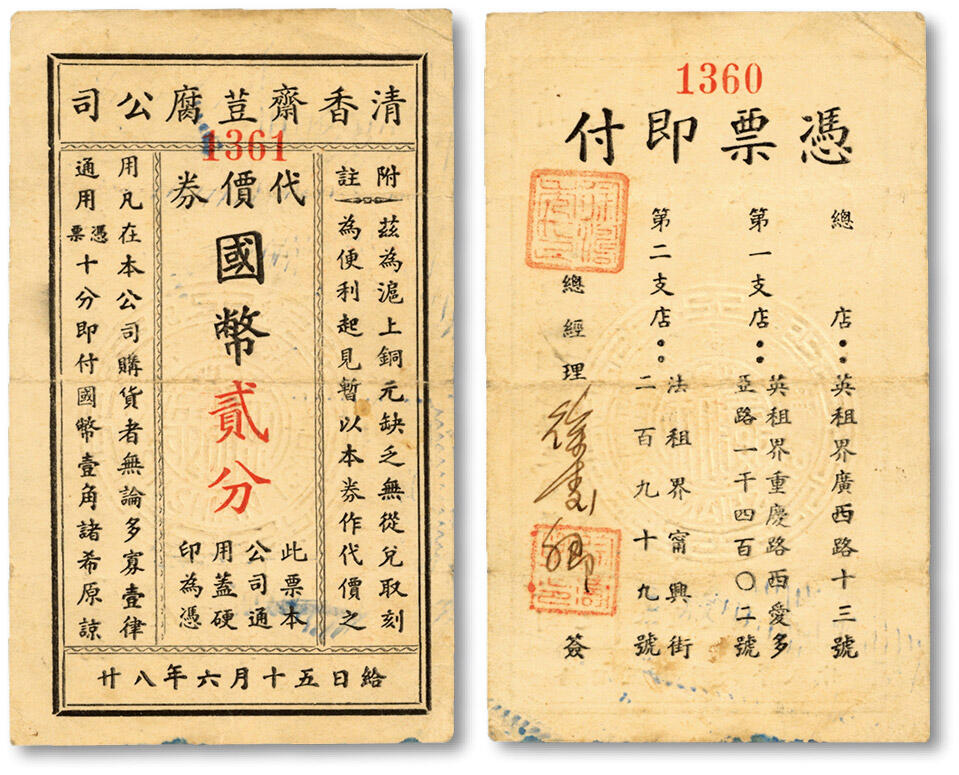 清香齋荳腐公司
1361
附註
茲為滬上銅元缺乏無從兌取刻
為便利起見暫以本券作代價之
代價券
國幣貳分
此票本
公司通
用蓋硬
印為憑
用凡在本公司購貨者無論多寡壹律
通用憑票十分即付國幣壹角諸希原諒
廿八年六月十五日給
1360
憑票即付
總店：英租界廣西路十三號
第一支店：英租界重慶路西愛多
亞路一千四百〇二號
第二支店：法租界甯興街
二百九十九號
總經理 簽